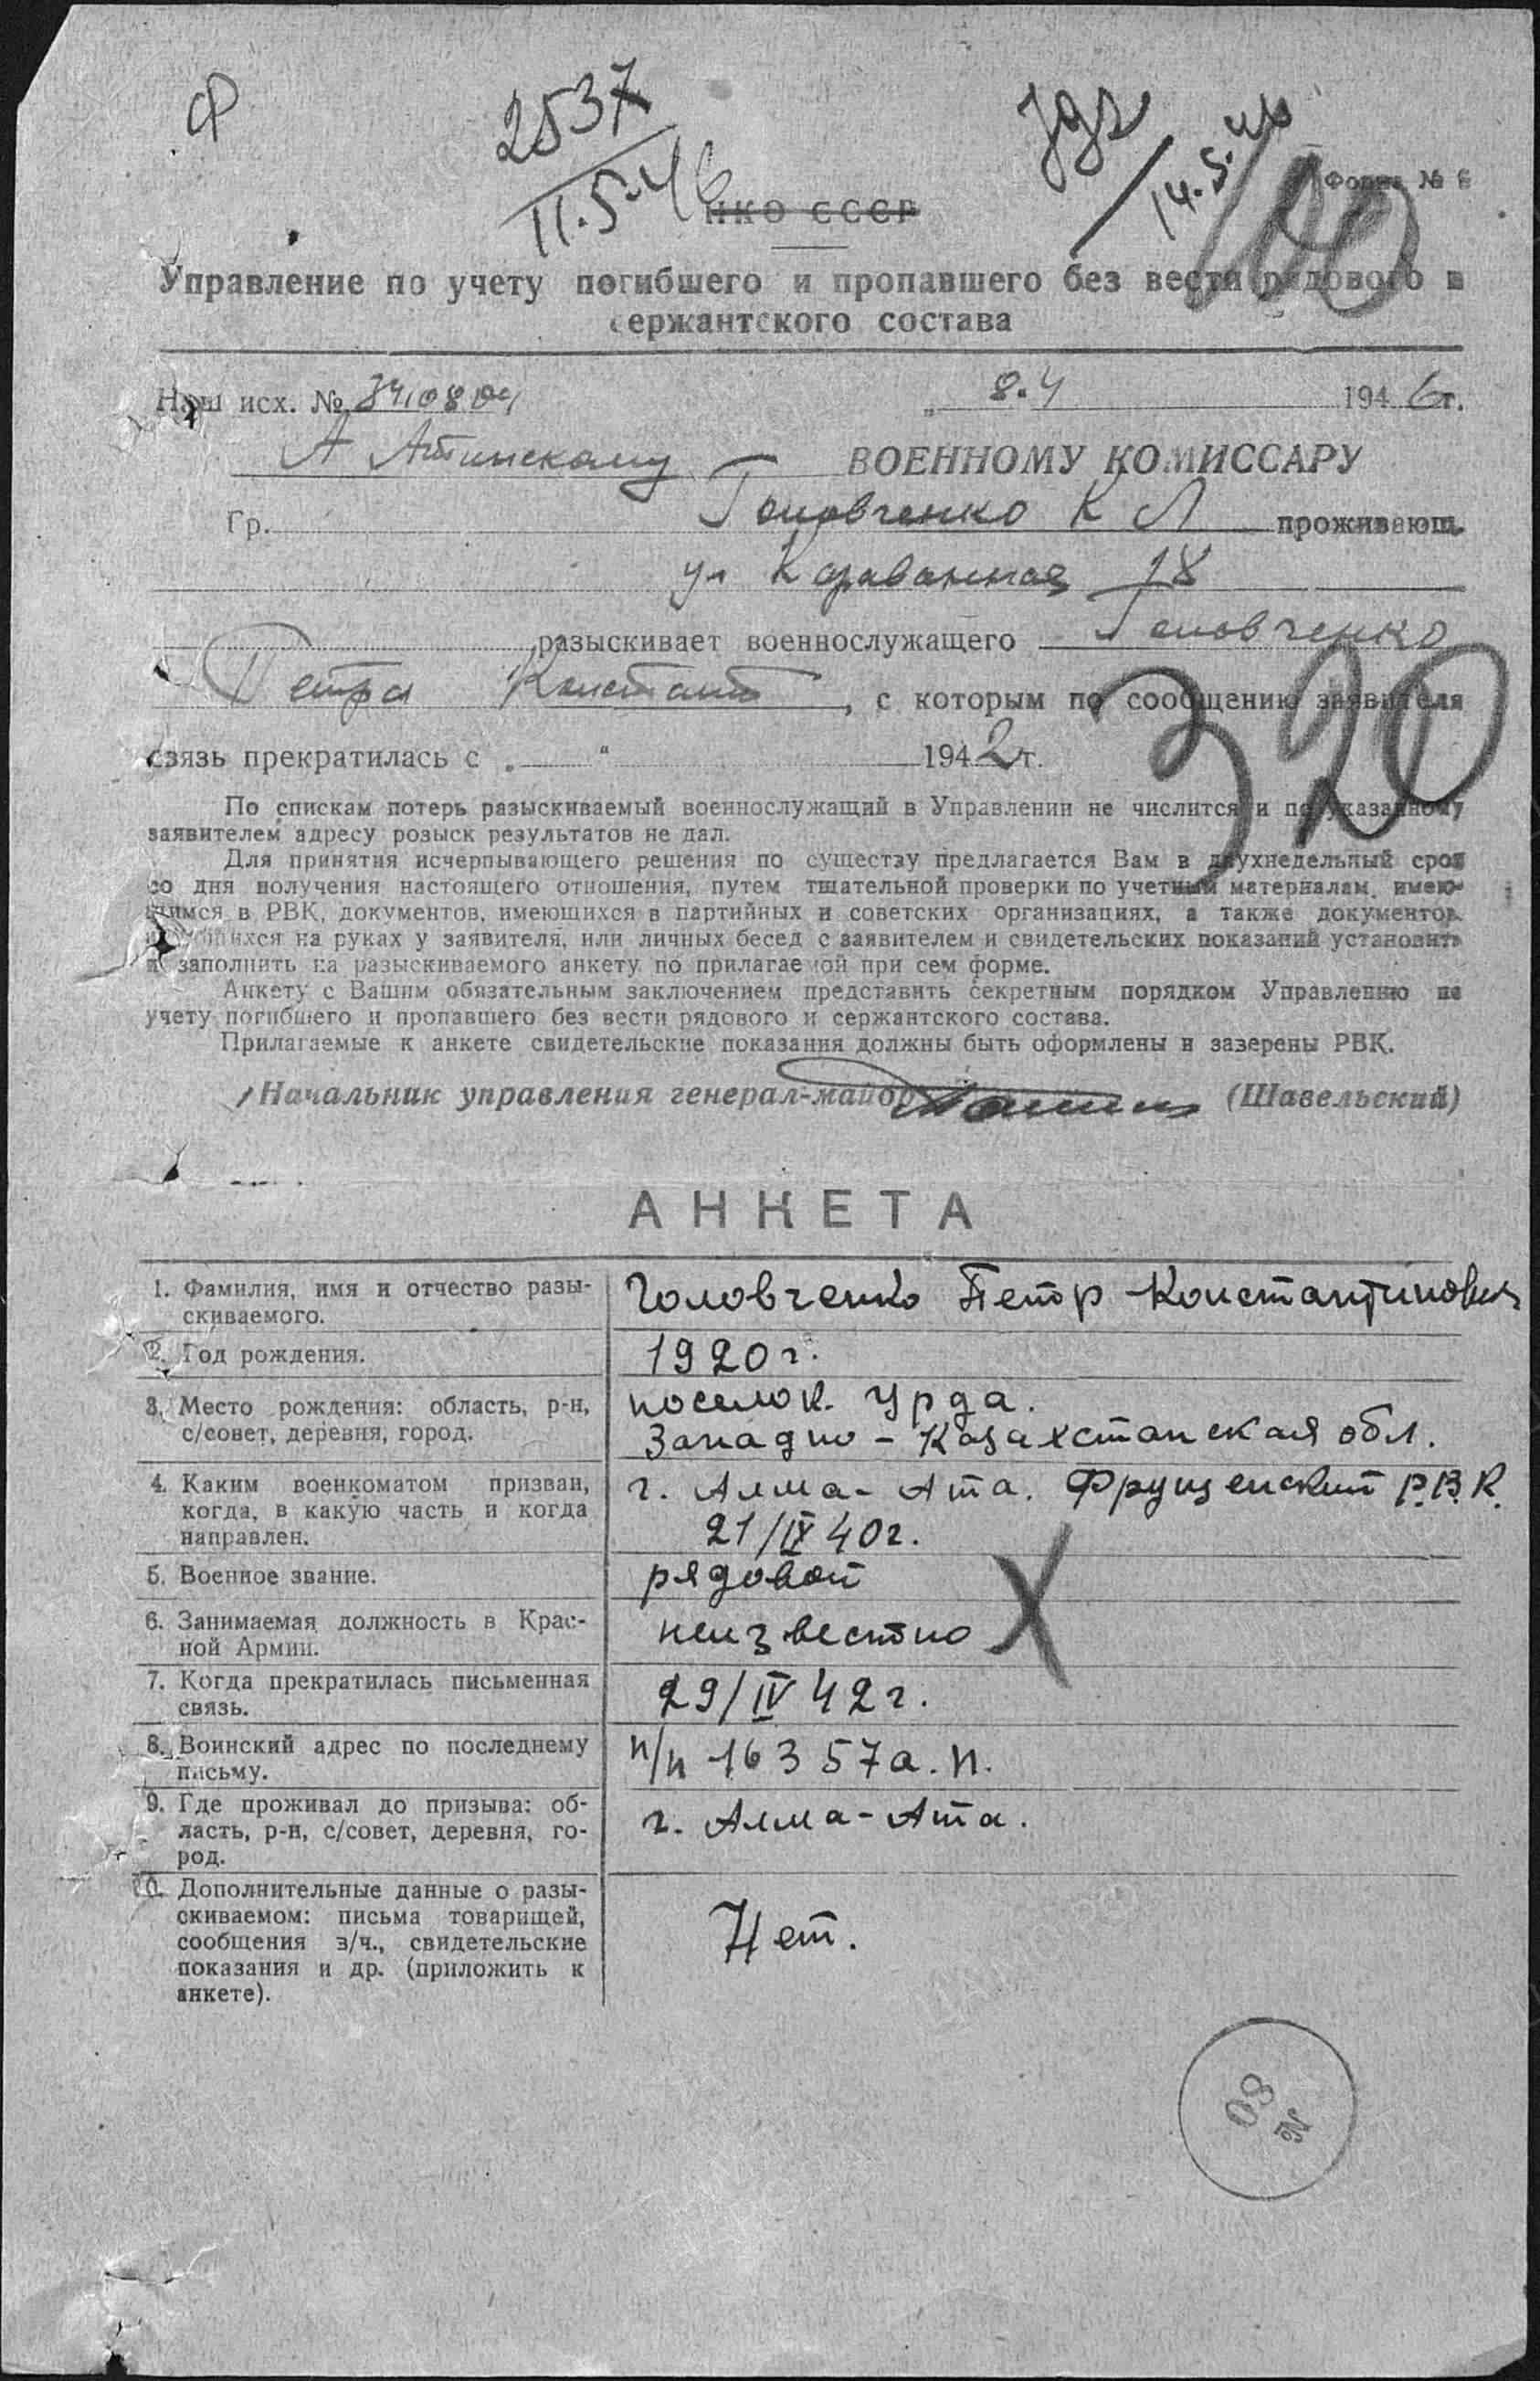 Ф
2537
11.5.46
14.5.46
100
Форма №
НКО СССР
Управление по учету погибшего и пропавшего без вести рядового и
сержантского состава
Наш исх. № 8.4 1946г.
А Атинскому ВОЕННОМУ КОМИССАРУ
Гр. Головченко К Л проживающ.
ул Караванная 18
разыскивает военнослужащего Головченко
Петра Констант, с которым по сообщению заявителя
320
связь прекратилась с „ “ 1942г.
По спискам потерь разыскиваемый военнослужащий в Управлении не числится и по указанному
заявителем адресу розыск результатов не дал.
Для принятия исчерпывающего решения по существу предлагается Вам в двухнедельный срок
со дня получения настоящего отношения, путем тщательной проверки по учетным материалам, имею-
щимся в РВК, документов, имеющихся в партийных и советских организациях, а также документов,
имеющихся на руках у заявителя, или личных бесед с заявителем и свидетельских показаний установить
и заполнить на разыскиваемого анкету по прилагаемой при сем форме.
Анкету с Вашим обязательным заключением представить секретным порядком Управлению по
учету погибшего и пропавшего без вести рядового и сержантского состава.
Прилагаемые к анкете свидетельские показания должны быть оформлены и заверены РВК.
Начальник управления генерал-майор (Шавельский)
АНКЕТА
1. Фамилия, имя и отчество разы-
скиваемого.
Головченко Петр Константинович
2. Год рождения.
1920 г.
3. Место рождения: область, р-н,
с/совет, деревня, город.
поселок. Урда.
Западно-Казахстанская обл.
4. Каким военкоматом призван,
когда, в какую часть и когда
направлен.
г. Алма-Ата. Фрунзенский Р.В.К.
21/IX 40г.
5. Военное звание.
рядовой
6. Занимаемая должность в Крас-
ной Армии.
неизвестно
7. Когда прекратилась письменная
связь.
29/IV 42г.
8. Воинский адрес по последнему
письму.
п/п 16357а.п.
9. Где проживал до призыва: об-
ласть, р-н, с/совет, деревня, го-
род.
г. Алма-Ата.
10. Дополнительные данные о разы-
скиваемом: письма товарищей,
сообщения з/ч., свидетельские
показания и др. (приложить к
анкете).
Нет.
№
80